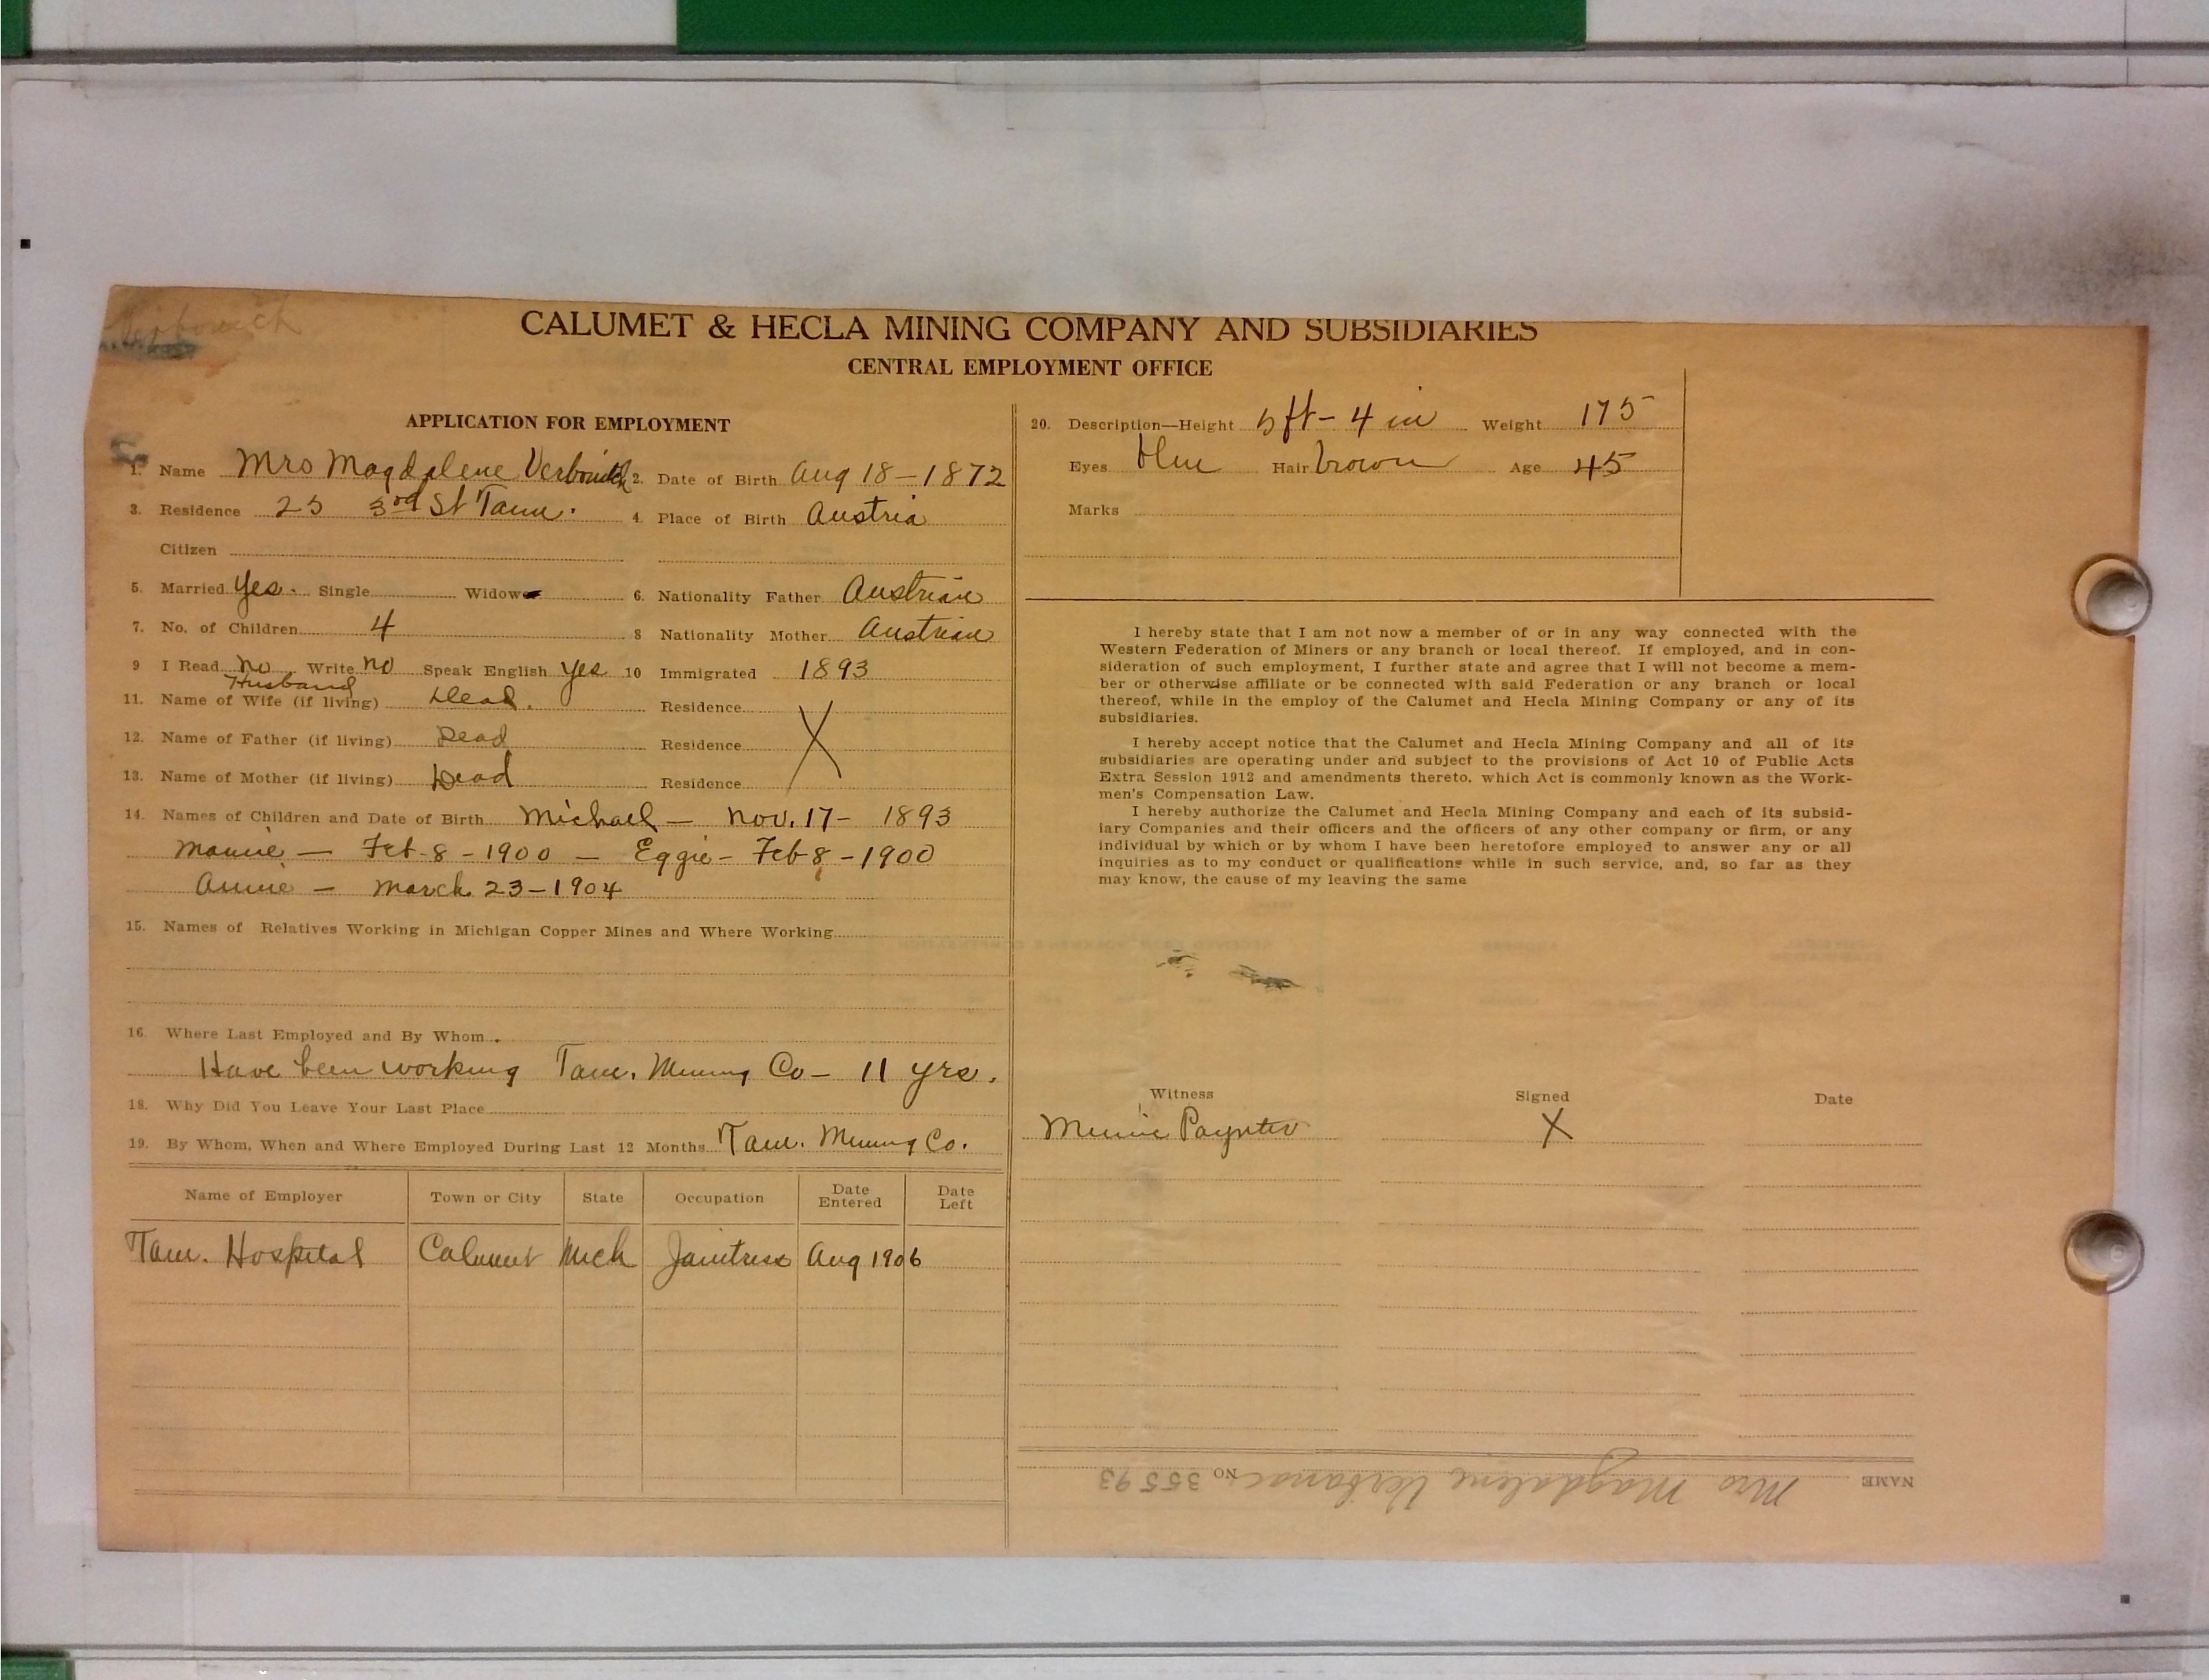 Verbowich
CALUMET & HECLA MINING COMPANY AND SUBSIDIARIES
CENTRAL EMPLOYMENT OFFICE
APPLICATION FOR EMPLOYMENT
1. Name Mrs Magdalene Verbowich 2. Date of Birth Aug 18-1872
3. Residence 25 3rd St Tam. 4. Place of Birth Austria
Citizen
5. Married Yes. Single Widow 6. Nationality Father Austrian
7. No. of Children 4 8 Nationality Mother Austrian
9 I Read no Write no Speak English yes 10 Immigrated 1893
Husband
11. Name of Wife (if living) Dead. Residence X
12. Name of Father (if living) Dead Residence
13. Name of Mother (if living) Dead Residence
14. Names of Children and Date of Birth Michael - Nov. 17 - 1893
Mamie - Feb-8-1900 - Eggie - Feb 8 - 1900
Annie - March 23-1904
15. Names of Relatives Working in Michigan Copper Mines and Where Working
16. Where Last Employed and By Whom
Have been working Tam. Mining Co - 11 yrs.
18. Why Did You Leave Your Last Place
19. By Whom, When and Where Employed During Last 12 Months Tam. Mining Co.
Name of Employer Town or City State Occupation Date Entered Date Left
Tam. Hospital Calumet Mich Janitress Aug 1906
20. Description—Height 5 ft - 4 in Weight 175
Eyes blue Hair brown Age 45
Marks
I hereby state that I am not now a member of or in any way connected with the
Western Federation of Miners or any branch or local thereof. If employed, and in con-
sideration of such employment, I further state and agree that I will not become a mem-
ber or otherwise affiliate or be connected with said Federation or any branch or local
thereof, while in the employ of the Calumet and Hecla Mining Company or any of its
subsidiaries.
I hereby accept notice that the Calumet and Hecla Mining Company and all of its
subsidiaries are operating under and subject to the provisions of Act 10 of Public Acts
Extra Session 1912 and amendments thereto, which Act is commonly known as the Work-
men's Compensation Law.
I hereby authorize the Calumet and Hecla Mining Company and each of its subsid-
iary Companies and their officers and the officers of any other company or firm, or any
individual by which or by whom I have been heretofore employed to answer any or all
inquiries as to my conduct or qualifications while in such service, and, so far as they
may know, the cause of my leaving the same
Witness Signed Date
Minnie Paynter X
NAME Mrs Magdalene Verbanac No 35593